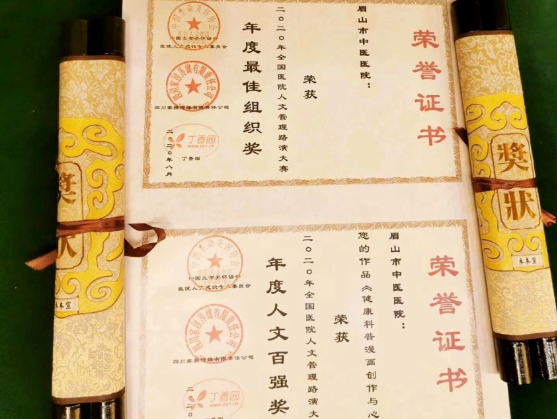 荣誉证书
眉山市中医医院：
荣获
二〇二〇年全国医院人文管理路演大赛
年度最佳组织奖
四川家庭传媒有限责任公司
丁香园
丁香园
二〇二〇年八月
荣誉证书
眉山市中医医院：
您的作品《健康科普漫画创作与心
荣获
二〇二〇年全国医院人文管理路演大
年度人文百强奖
丁香园
獎狀
獎狀